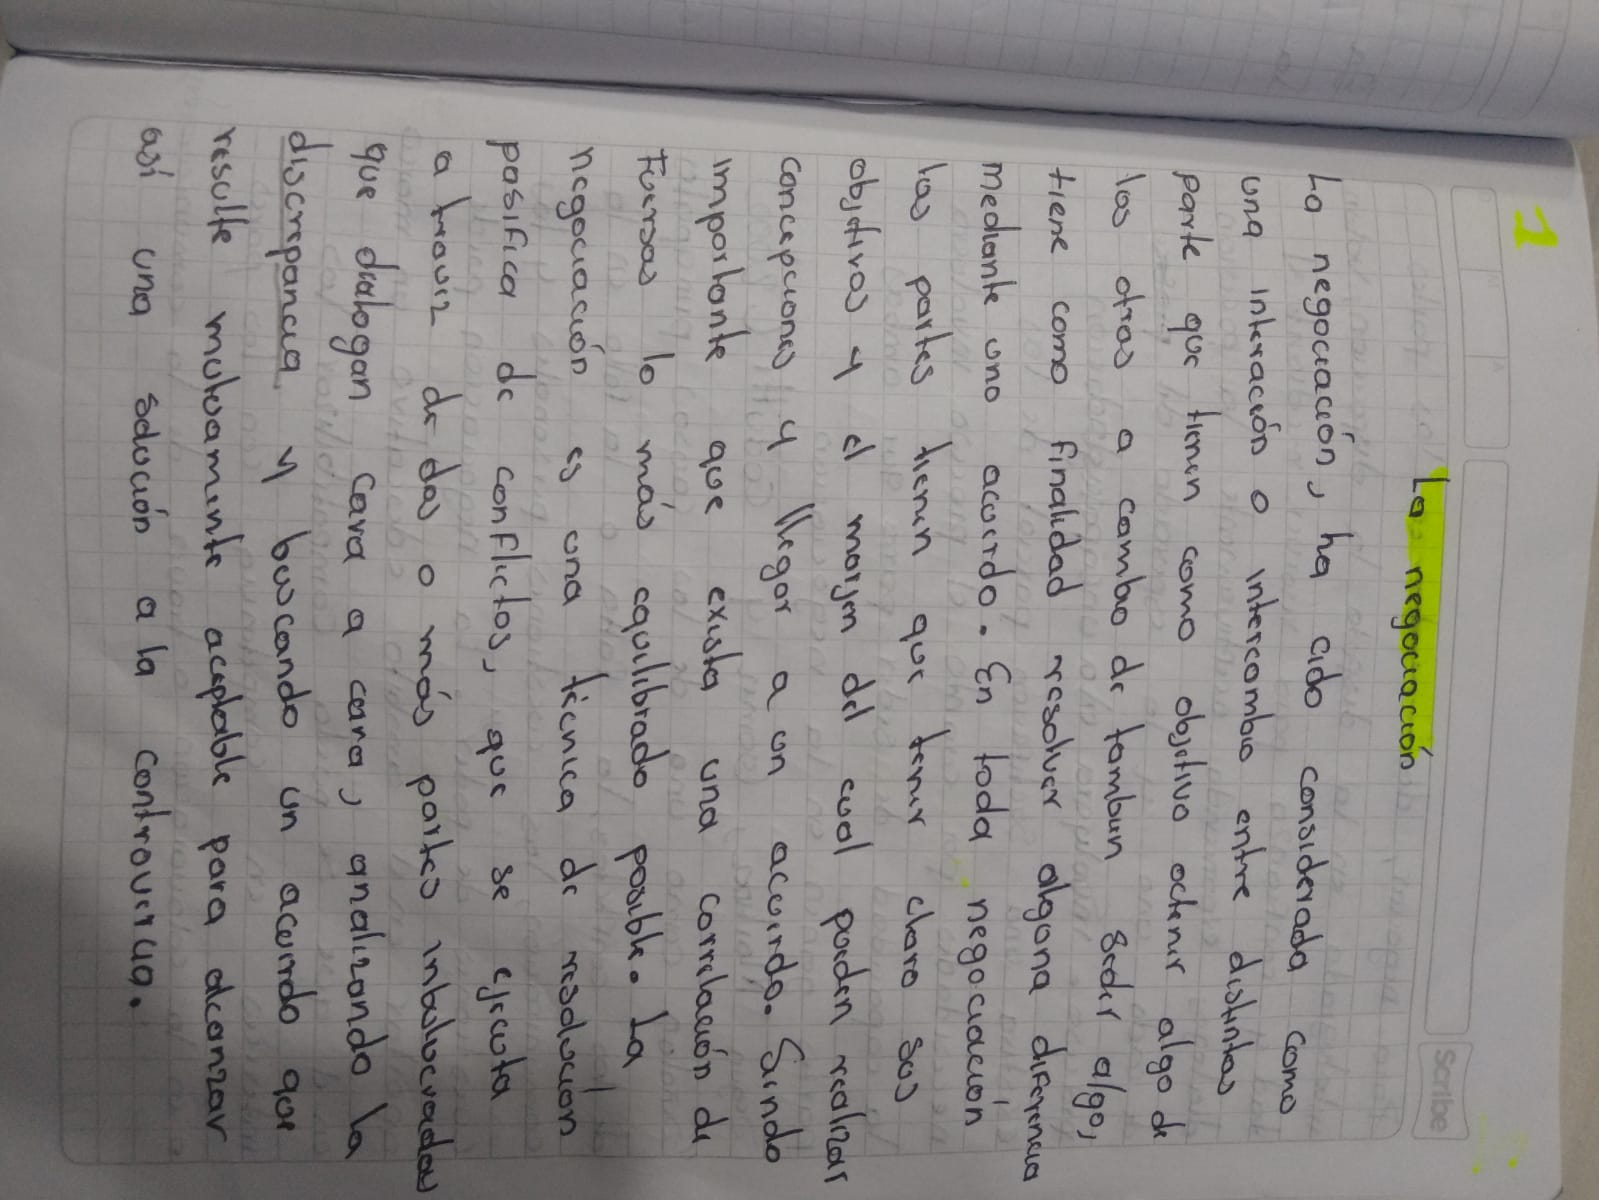 1
Scribe
La negociación
La negociación, ha cido considerada como
una interación o intercambio entre distintas
parte que tienen como objetivo octener algo de
las otras a cambio de tambien seder algo,
tiene como finalidad resolver alguna diferencia
mediante uno acuerdo. En toda negociación
las partes tienen que tener claro sus
objetivos y el marjen del cual pueden realizar
concepciones y llegar a un acuerdo. Siendo
importante que exista una correlación de
Fuersas lo más equilibrado posible. La
negociación es una técnica de resolución
pasifica de conflictos, que se ejecuta
a travéz de dos o más partes inbolucradas
que dialogan cara a cara, analizando la
discrepancia y buscando un acuerdo que
resulte mutuamente aceptable para alcanzar
así una solución a la controversia.